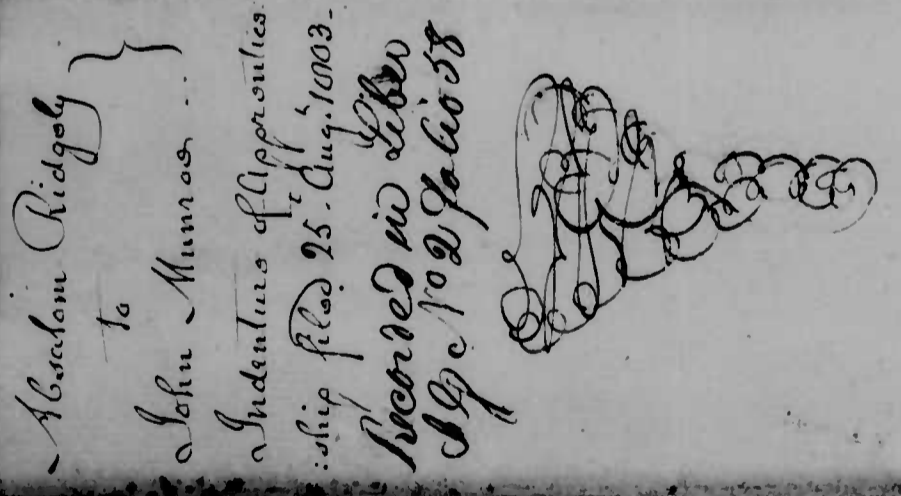 Absalom Ridgely }
to
John Munroe
Indenture of Apprentice
:ship filed 25t. Augt. 1803.
Recorded in Liber
No 2 folio 58